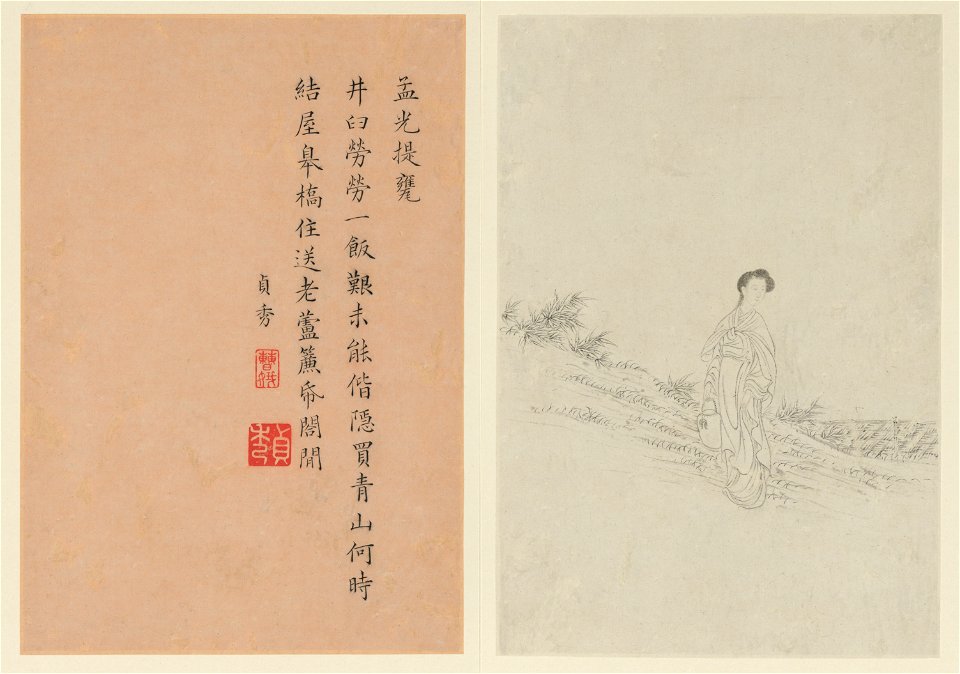 孟光提甕
井臼勞勞一飯艱未能偕隱買青山何時
結屋皋橋住送老蘆簾帋閤閒
貞秀
曹貞
秀